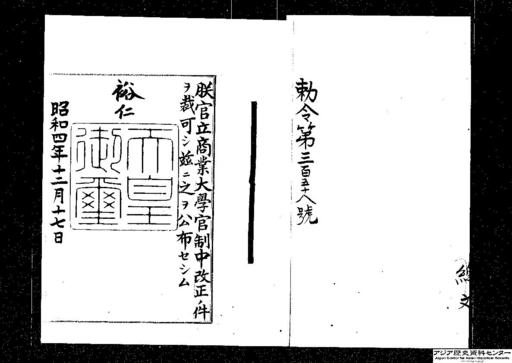 勅令第三百五十八號
朕官立商業大學官制中改正ノ件
ヲ裁可シ茲ニ之ヲ公布セシム
裕仁
天皇
御璽
昭和四年十二月十七日
アジア歴史資料センター
Japan Center for Asian Historical Records